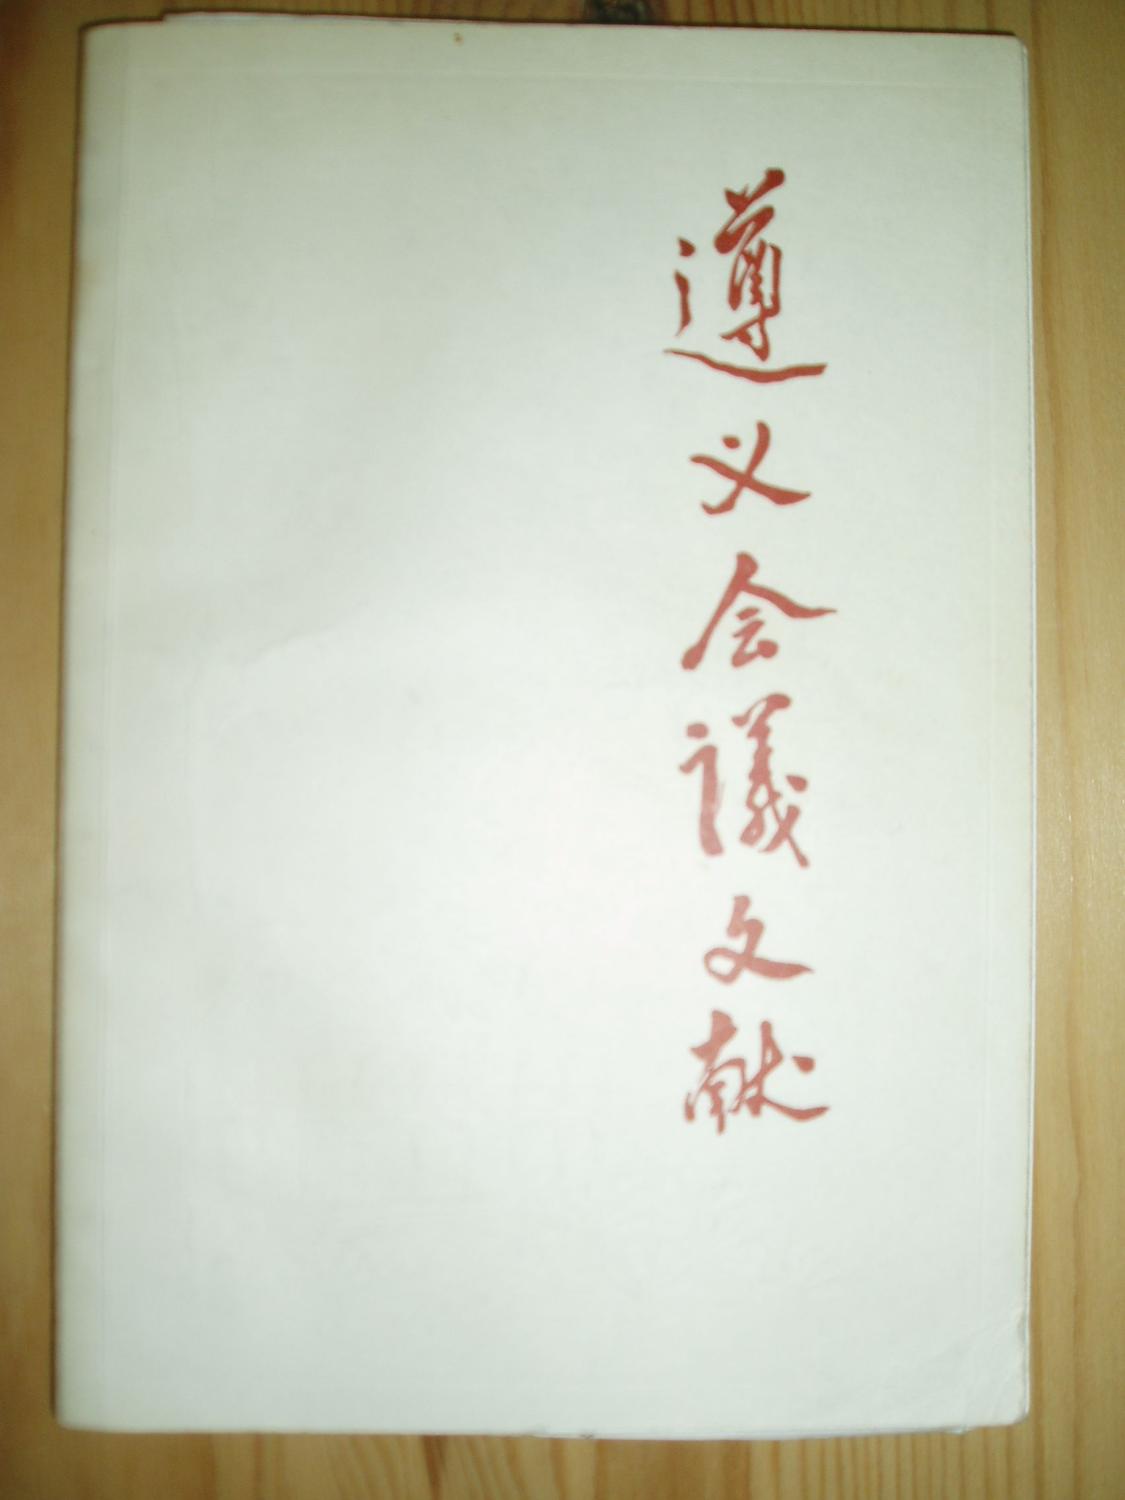 遵义会議文献